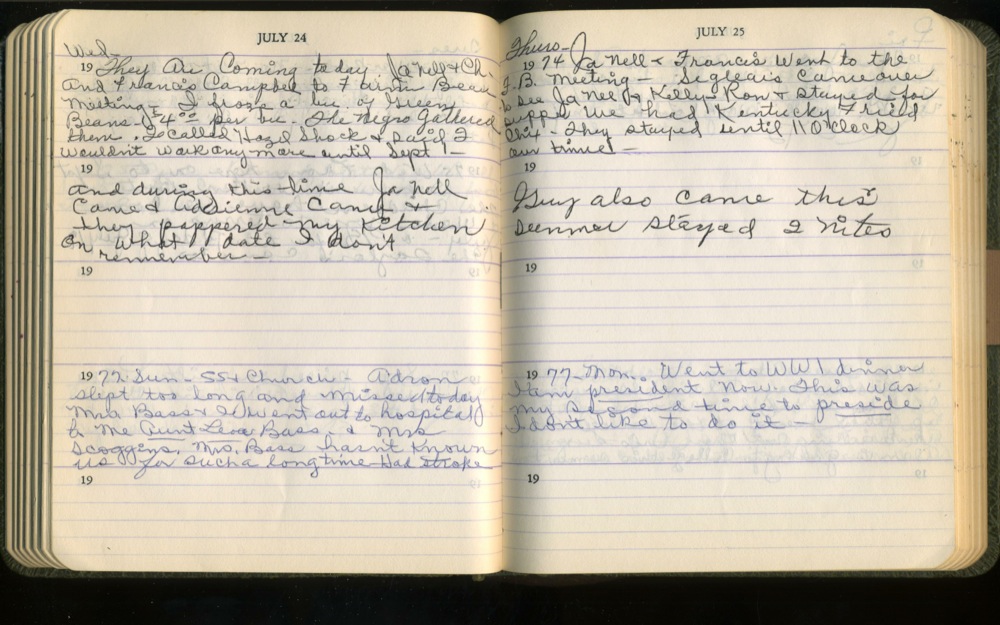 JULY 24
Wed-
19 They Are Coming today. Ja Nell & Ch.
and Francis Campbell to F Bean
Meeting - I froze a bu. of Green
Beans - $4.00 per bu. The Negro Gathered
them. I called Hazel Shock & said I
wouldnt work any more until Sept -
19
and during this time Ja Nell
Came & Adrienne Came &
they pappered my Ketchen
on What date I don't
remmember -
19
1977 Sun - SS & Church - Adron
slept too long and missed today
Mrs Bass & I went out to hospital
to see Aunt Lexa Bass, & Mrs
Scoggins. Mrs. Bass hasn't Known
us for such a long time - Had stroke
19
JULY 25
Thurs-
1974 Ja Nell & Francis Went to the
F.B. Meeting - Seglears came over
to see Ja Nell & Kelly - Ron & stayed for
supper We had Kentucky Fried
Chix - They stayed until 11 O'Clock
our time -
19
Guy also came this
summer stayed 2 nites
19
1977 - Mon. Went to WW1 dinner
I am president now. This was
my second time to preside
I dont like to do it -
19